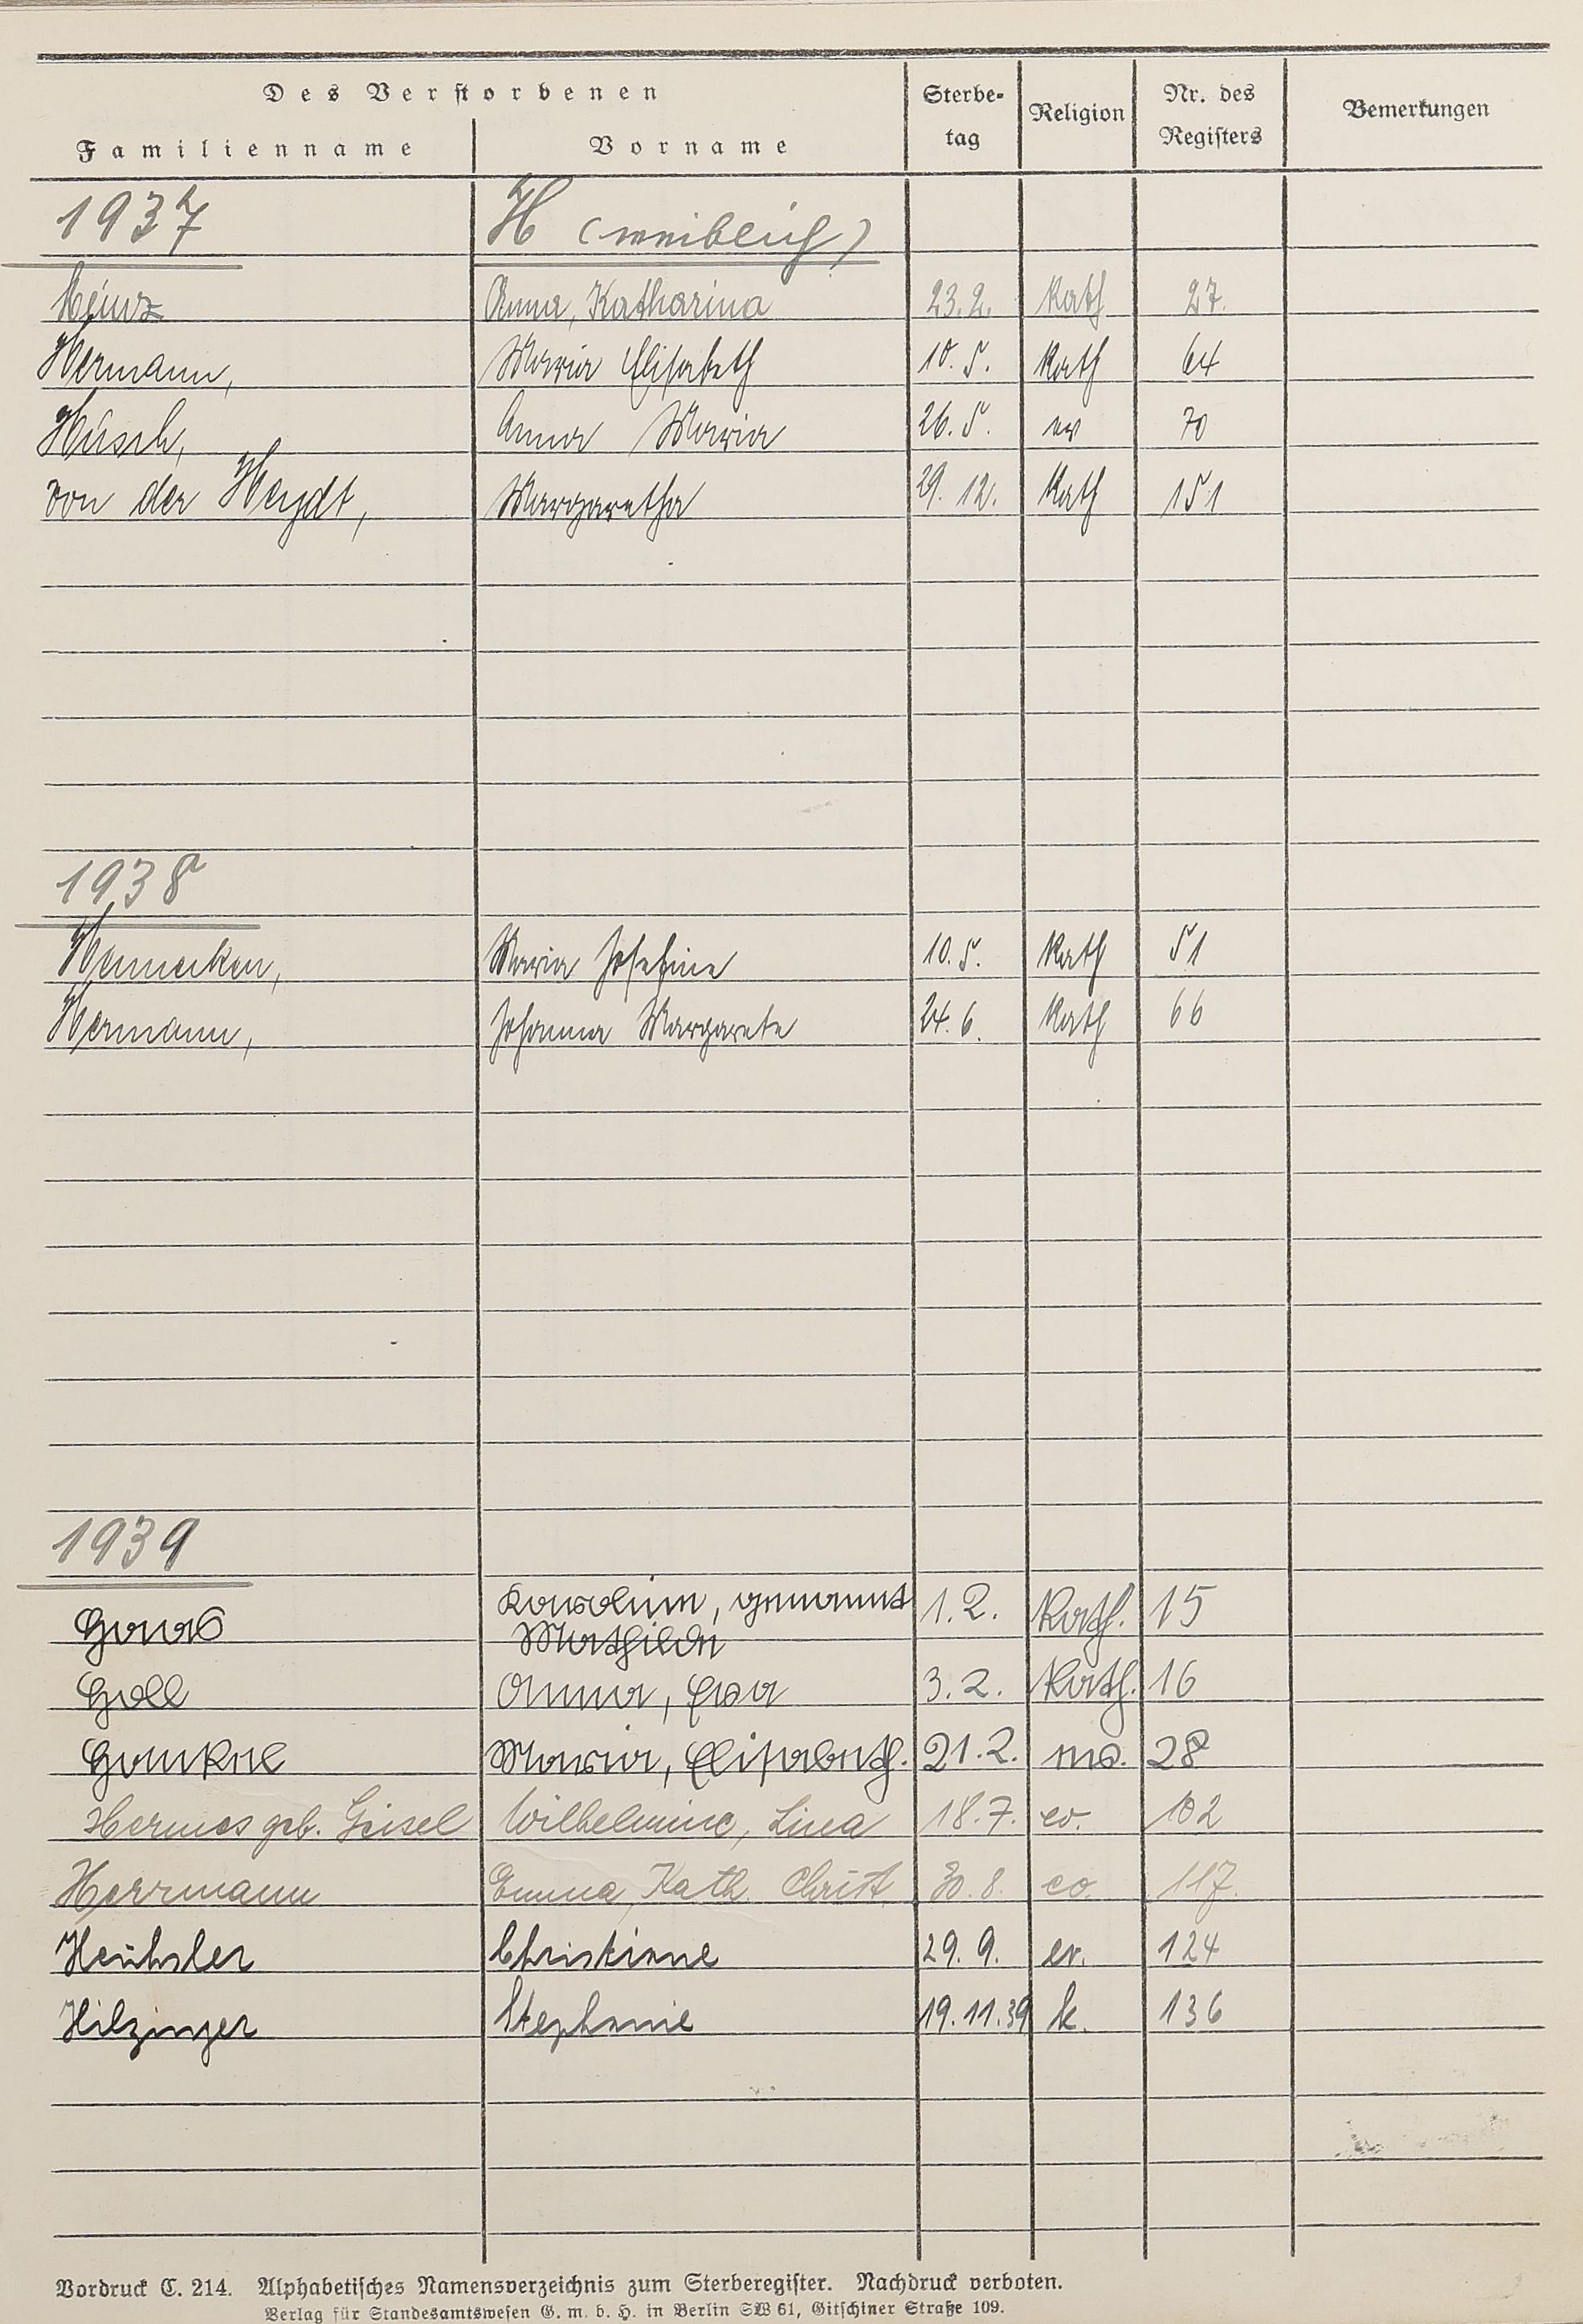 Des Verstorbenen
Familienname Vorname Sterbe-tag Religion Nr. des Registers Bemerkungen
1937 H (weiblich)
Heinz Anna, Katharina 23.2. Kath 27.
Hermann, Maria Elisabeth 10.5. Kath 64
Hüsch, Anna Maria 26.5. ev 70
von der Heydt, Margaretha 29.12. Kath 151
1938
Hennecken, Maria Josefine 10.5. Kath 51
Hermann, Johanna Margarete 24.6. Kath 66
1939
Haas Karoline, genannt 1.2. Kath. 15
Mathilde
Holl Anna, Eva 3.2. Kath. 16
Henkel Maria, Elisabeth. 21.2. ev. 28
Hermes geb. Geisel Wilhelmine, Lina 18.7. ev. 102
Herrmann Emma, Kath. Christ. 30.8. ev. 117.
Christiane 29.9. ev. 124
Hilzinger Stephanie 19.11.39 k. 136
Vordruck C. 214. Alphabetisches Namensverzeichnis zum Sterberegister. Nachdruck verboten.
Verlag für Standesamtswesen G. m. b. H. in Berlin SW 61, Gitschiner Straße 109.